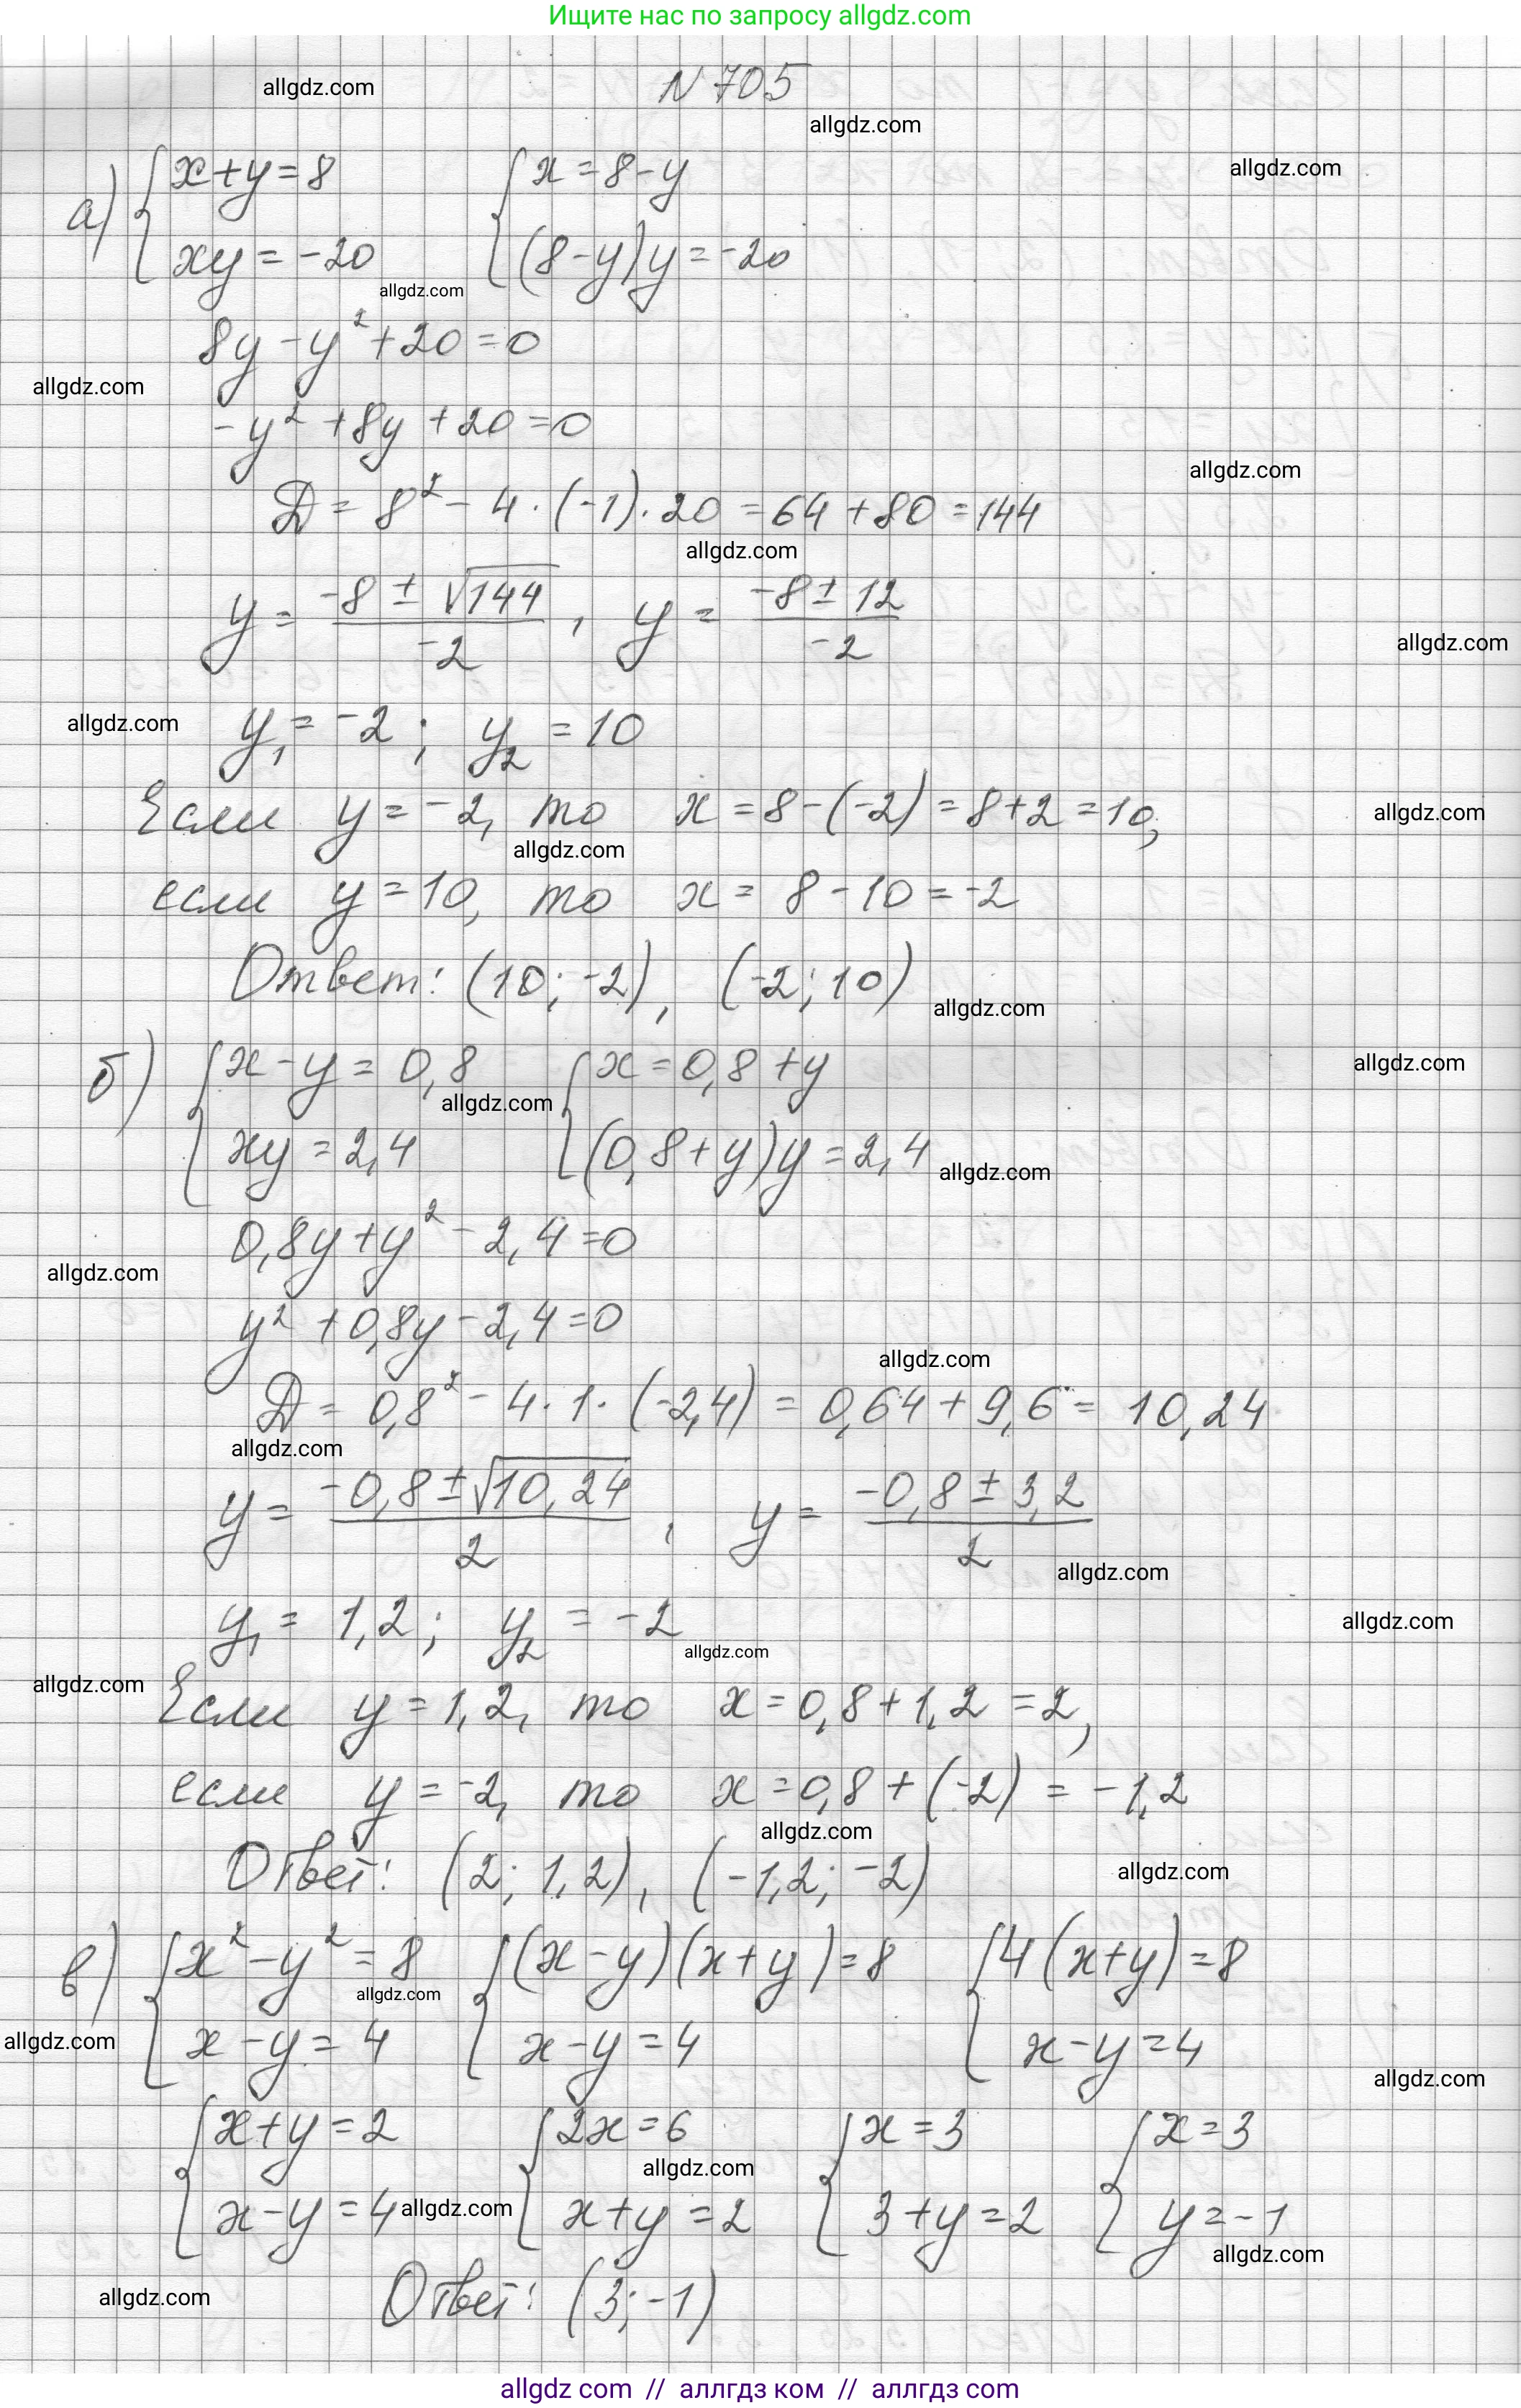 Ищите нас по запросу allgdz.com
N 705
allgdz.com
allgdz.com
allgdz.com
а) { x+y=8 { x=8-y
xy=-20 (8-y)y=-20
allgdz.com
8y-y²+20=0
allgdz.com
-y²+8y+20=0
allgdz.com
Д = 8² - 4·(-1)·20 = 64+80 = 144
allgdz.com
y = (-8 ± √144)/-2 , y = (-8 ± 12)/-2
allgdz.com
allgdz.com
y₁ = -2 ; y₂ = 10
Если y = -2, то x = 8-(-2) = 8+2 = 10,
allgdz.com
allgdz.com
если y = 10, то x = 8-10 = -2
Ответ: (10; -2), (-2; 10)
allgdz.com
б) { x-y = 0,8 { x = 0,8+y
allgdz.com
allgdz.com
xy = 2,4 (0,8+y)y = 2,4
allgdz.com
0,8y+y²-2,4=0
allgdz.com
y²+0,8y-2,4=0
allgdz.com
Д = 0,8² - 4·1·(-2,4) = 0,64+9,6 = 10,24
allgdz.com
y = (-0,8 ± √10,24)/2 , y = (-0,8 ± 3,2)/2
allgdz.com
y₁ = 1,2; y₂ = -2
allgdz.com
allgdz.com
allgdz.com
Если y = 1,2, то x = 0,8+1,2 = 2,
если y = -2, то x = 0,8+(-2) = -1,2
allgdz.com
Ответ: (2; 1,2), (-1,2; -2)
allgdz.com
в) { x²-y²=8 { (x-y)(x+y)=8 { 4(x+y)=8
allgdz.com
x-y=4 x-y=4 x-y=4
allgdz.com
allgdz.com
{ x+y=2 { 2x=6 { x=3 { x=3
allgdz.com
x-y=4 x+y=2 3+y=2 y=-1
allgdz.com
allgdz.com
Ответ: (3; -1)
allgdz.com
allgdz com // аллгдз ком // аллгдз com